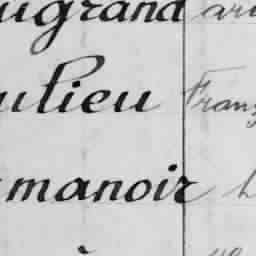 ugrand
ulieu Franç
manoir